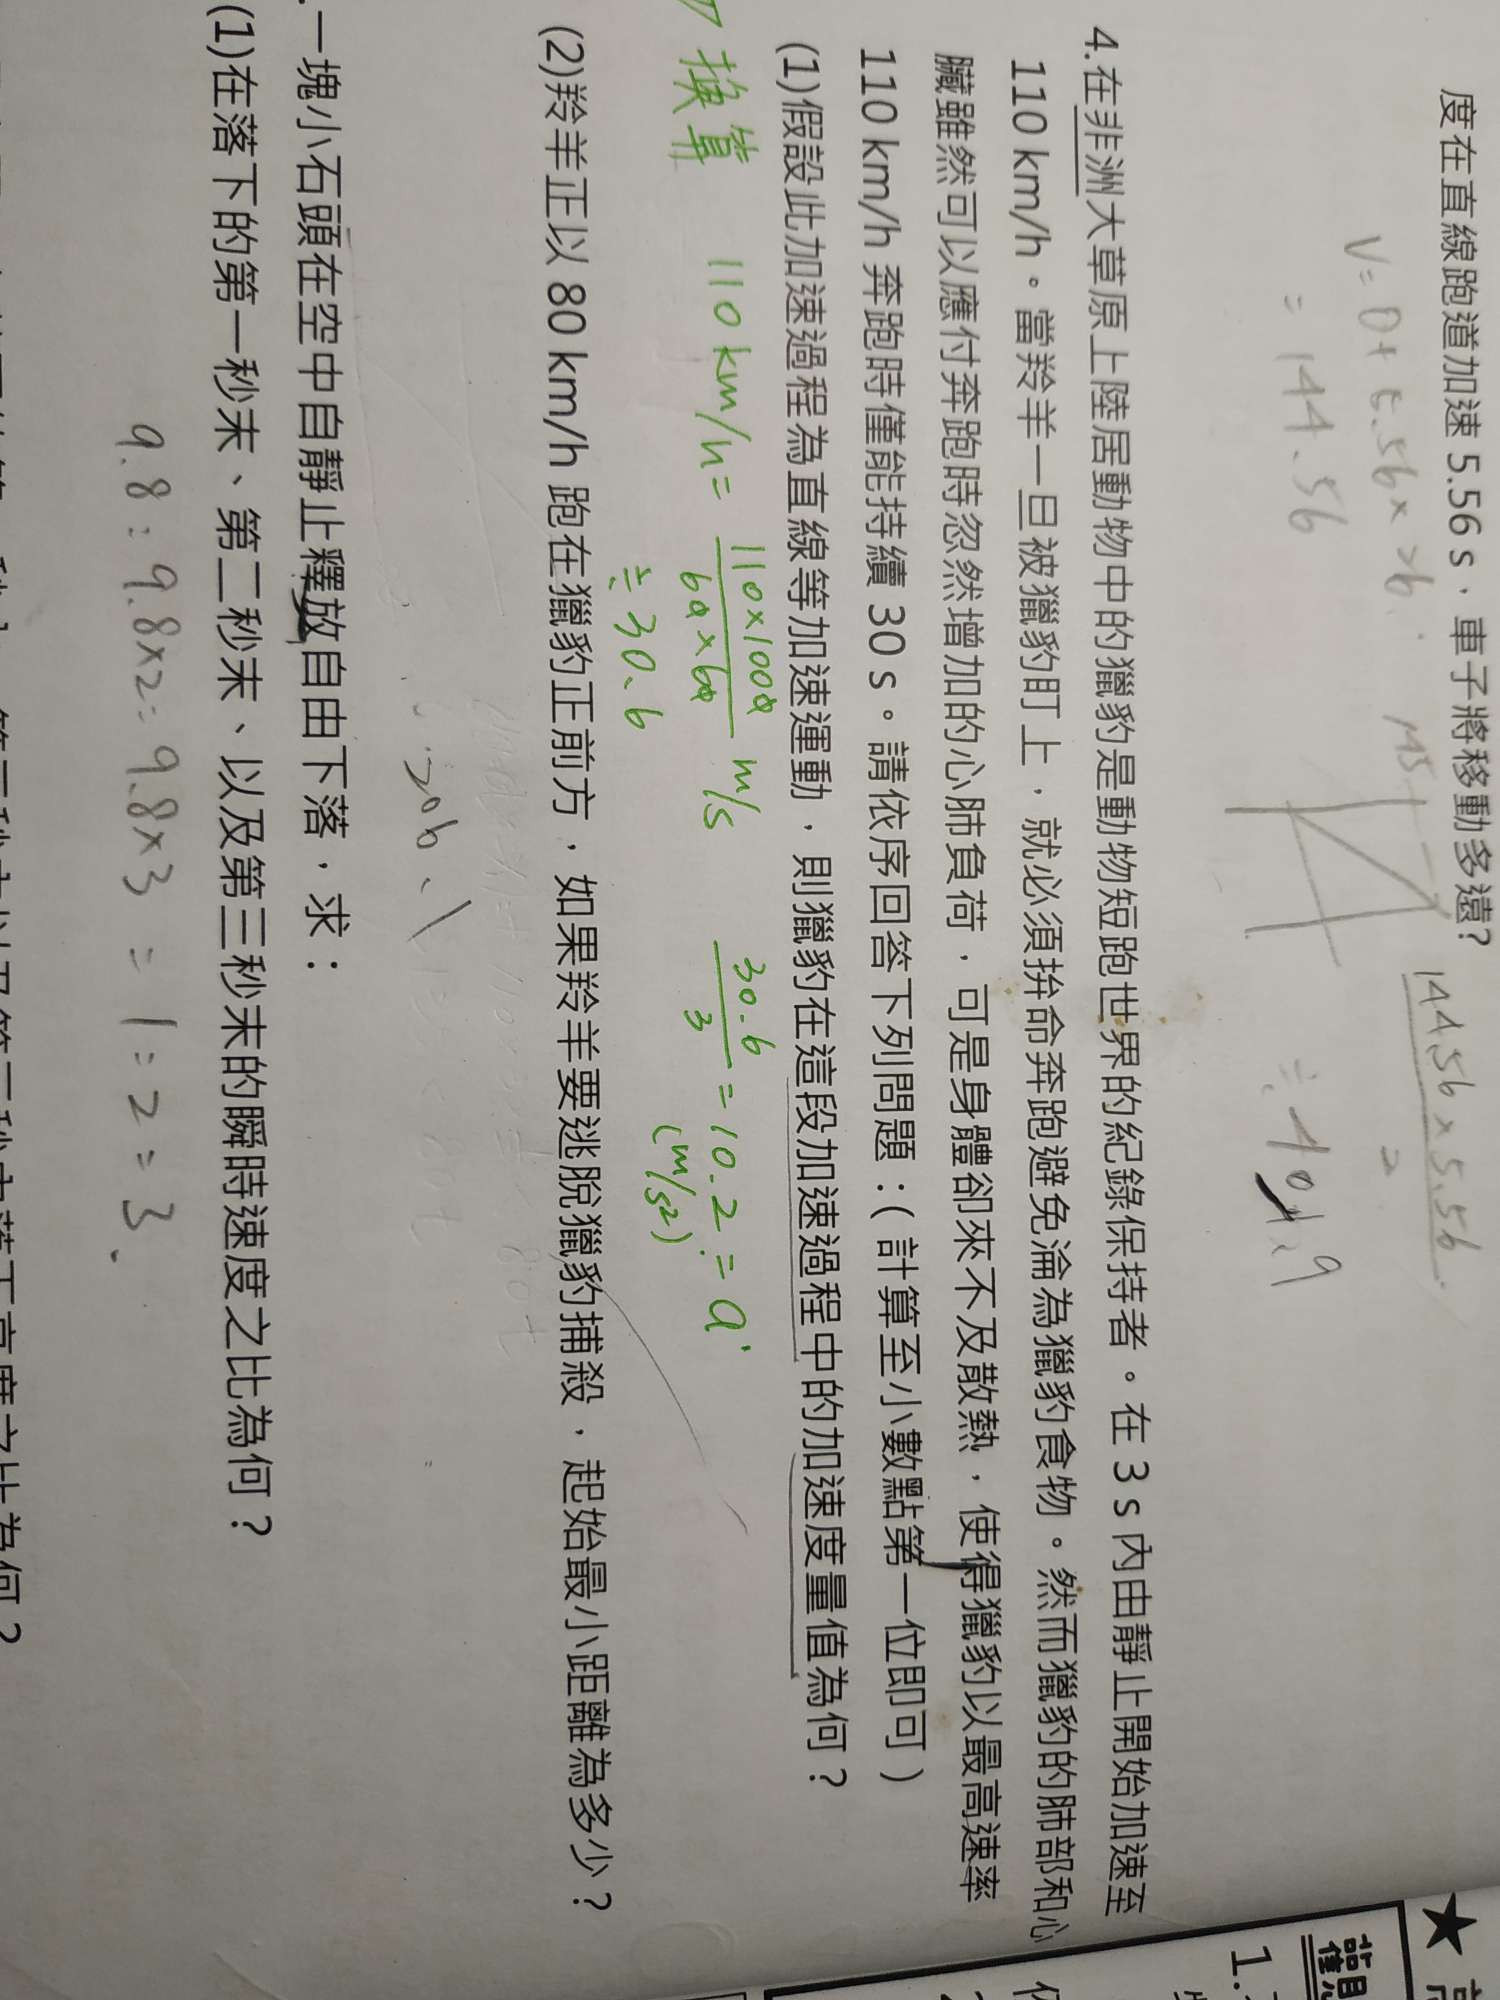 度在直線跑道加速 5.56 s，車子將移動多遠？
V=0+5.56×26
=144.56
144.56×5.56
2
≒401.9
4.在非洲大草原上陸居動物中的獵豹是動物短跑世界的紀錄保持者。在 3 s 內由靜止開始加速至
110 km/h。當羚羊一旦被獵豹盯上，就必須拚命奔跑避免淪為獵豹食物。然而獵豹的肺部和心
臟雖然可以應付奔跑時忽然增加的心肺負荷，可是身體卻來不及散熱，使得獵豹以最高速率
110 km/h 奔跑時僅能持續 30 s。請依序回答下列問題：(計算至小數點第一位即可)
(1)假設此加速過程為直線等加速運動，則獵豹在這段加速過程中的加速度量值為何？
換算 110km/h = 110×1000 m/s 30.6 = 10.2 = a
60×60 3 (m/s²)
≒30.6
(2)羚羊正以 80 km/h 跑在獵豹正前方，如果羚羊要逃脫獵豹捕殺，起始最小距離為多少？
206.1
一塊小石頭在空中自靜止釋放自由下落，求：
(1)在落下的第一秒末、第二秒末、以及第三秒末的瞬時速度之比為何？
9.8：9.8×2=9.8×3 = 1=2=3.